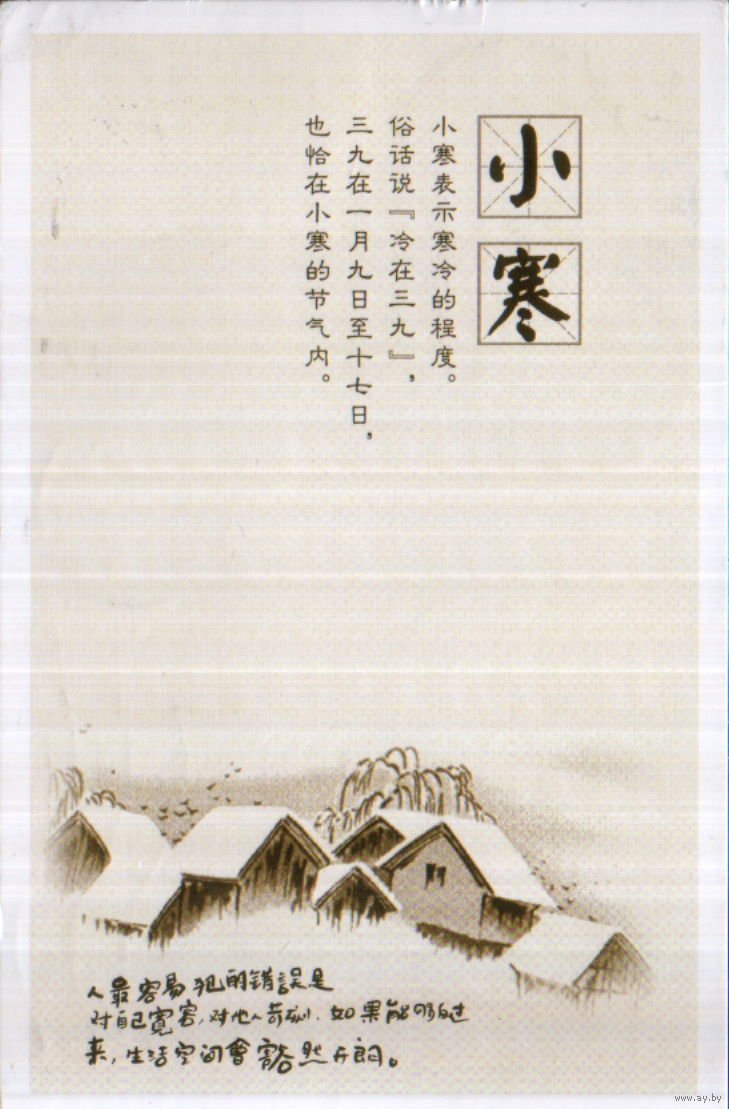 小寒
小寒表示寒冷的程度。
俗话说『冷在三九』，
三九在一月九日至十七日，
也恰在小寒的节气内。
人最容易犯的錯誤是
对自己寬容，对他人苛刻．如果能够
来，生活空间會豁然开朗。
www.ay.by